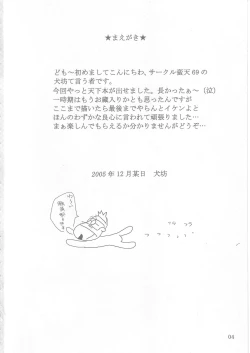 ★まえがき★
ども～初めましてこんにちわ。サークル蛮天69の
犬坊て言う者です。
今回やっと天下本が出せました。長かったぁ～（泣）
一時期はもうお蔵入りかとも思ったんですが
ここまで描いたら最後までやらんとイケンよと
ほんのわずかな良心に言われて頑張りました…
まぁ楽しんでもらえるか分かりませんがどうぞ…
2005年12月某日 犬坊
04